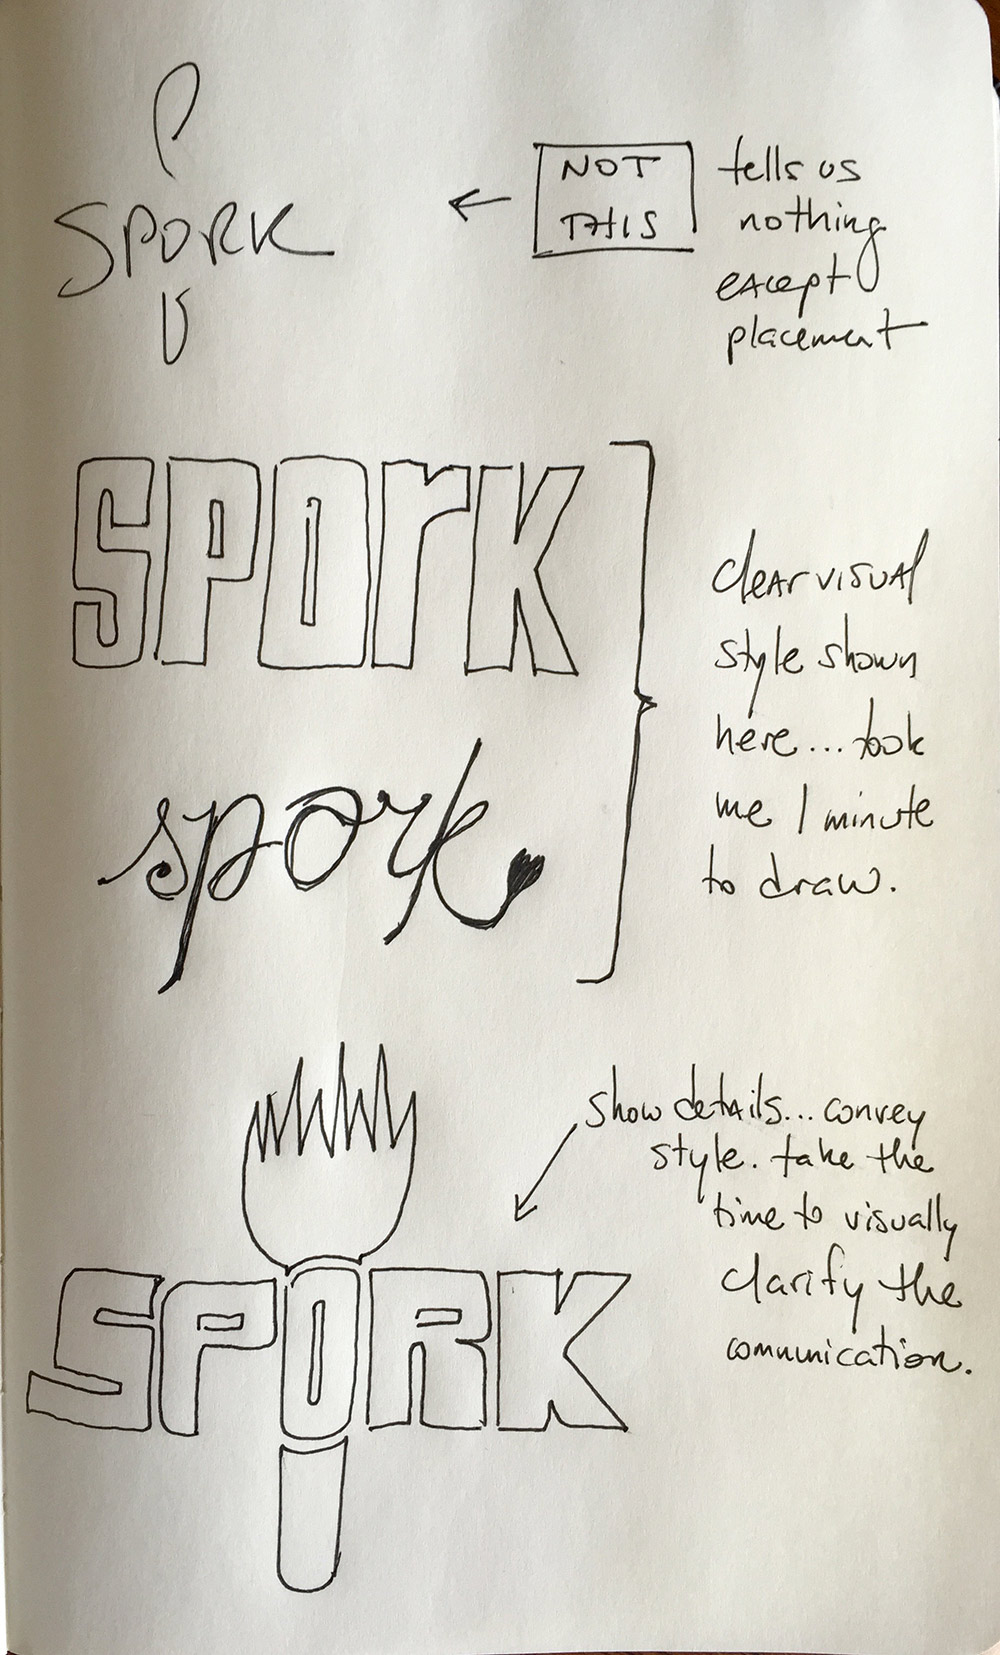 SPORK
NOT
THIS
tells us
nothing
except
placement
SPOrK
spork
clear visual
style shown
here... took
me 1 minute
to draw.
show details... convey
style. take the
time to visually
clarify the
communication.
SPORK